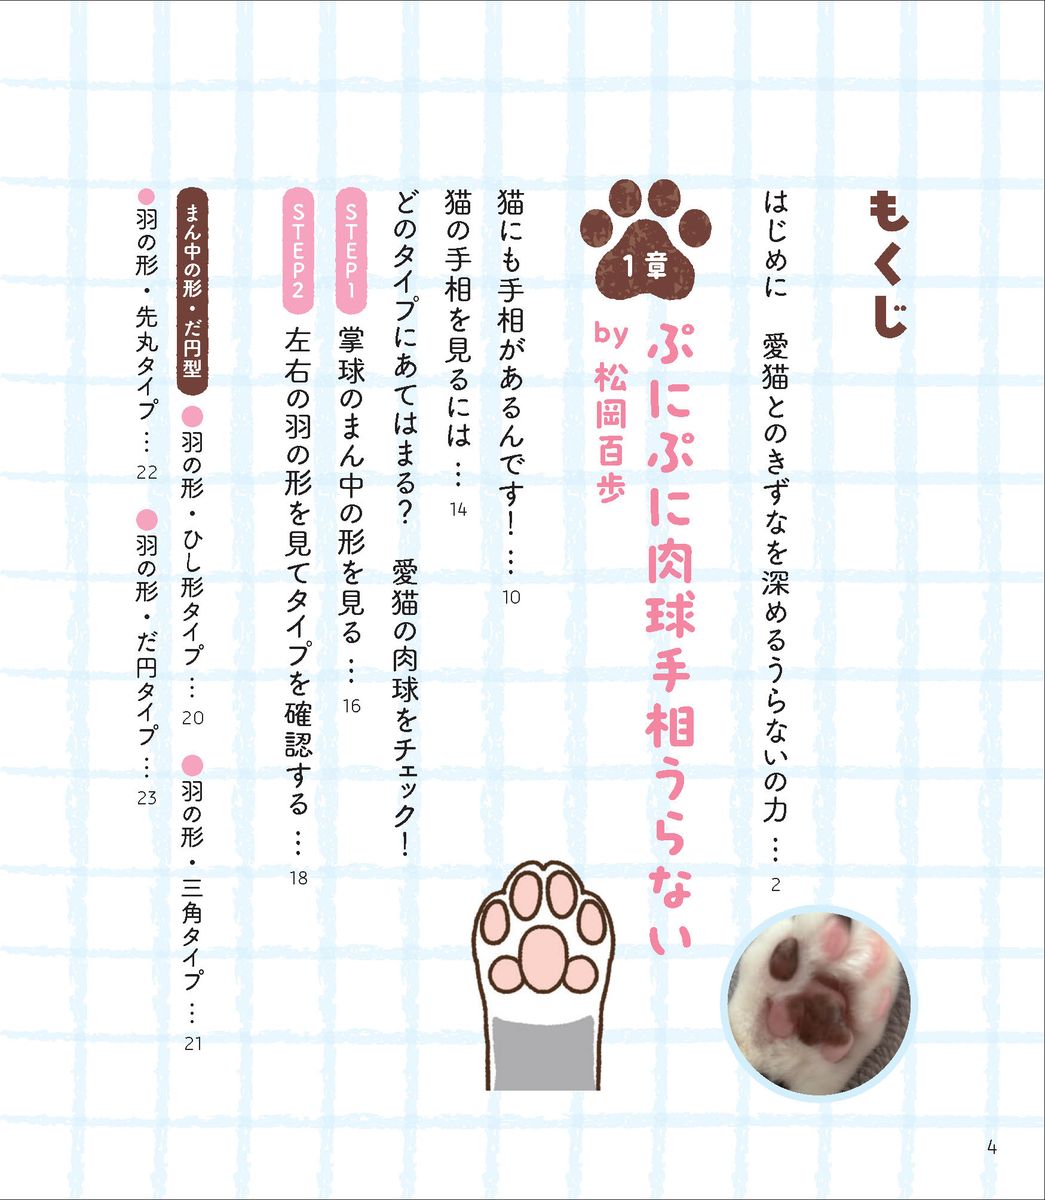 もくじ
はじめに　愛猫とのきずなを深めるうらないの力 … 2
1章
ぷにぷに肉球手相うらない
by 松岡百歩
猫にも手相があるんです！ … 10
猫の手相を見るには … 14
どのタイプにあてはまる？　愛猫の肉球をチェック！
STEP1 掌球のまん中の形を見る … 16
STEP2 左右の羽の形を見てタイプを確認する … 18
まん中の形・だ円型 ●羽の形・ひし形タイプ … 20 ●羽の形・三角タイプ … 21
●羽の形・先丸タイプ … 22 ●羽の形・だ円タイプ … 23
4